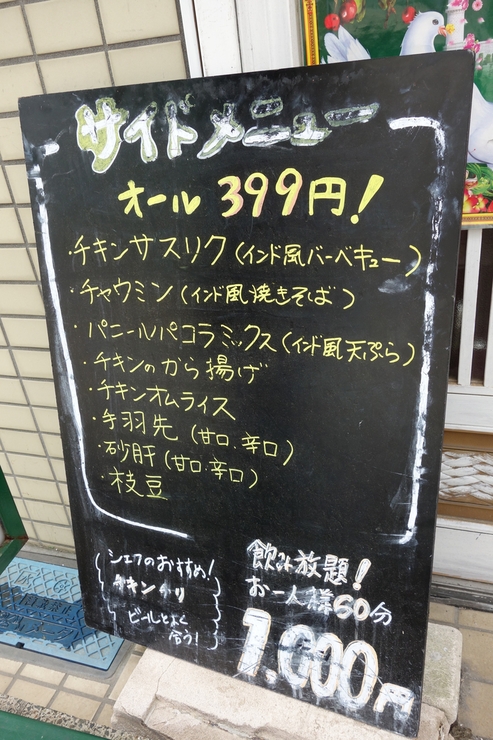 サイドメニュー
オール 399円!
・チキンサスリク(インド風バーベキュー)
・チャウミン(インド風焼きそば)
・パニールパコラミックス(インド風天ぷら)
・チキンのから揚げ
・チキンオムライス
・手羽先(甘口・辛口)
・砂肝(甘口・辛口)
・枝豆
シェフのおすすめ!
チキンチリ
ビールとよく
合う!
飲み放題!
お一人様60分
1,000円